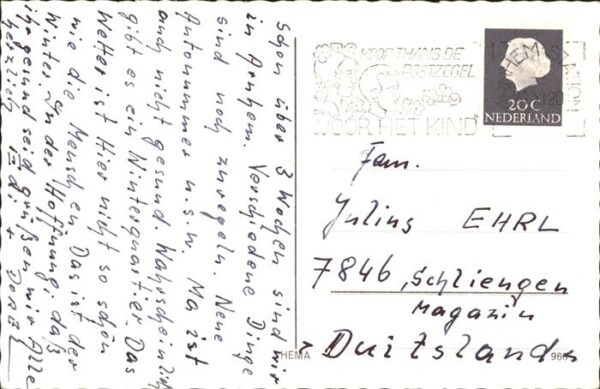 Schon über 3 Wochen sind wir
in Arnhem. Verschiedene Dinge
sind noch zu regeln. Neue
Autonummer u.s.w. Ma ist
auch nicht gesund. Wahrscheinlich
gibt es ein Winterquartier. Das
Wetter ist hier nicht so schön
wie die Menschen. Das ist der
Winter. In der Hoffnung: daß
ihr gesund seid grüßen wir Alle
herzlich
KOOP THANS DE
POSTZEGEL
VOOR HET KIND
20 C
NEDERLAND
Fam.
Julius EHRL
7846, Schliengen
Magazin
Duitsland
HEMA